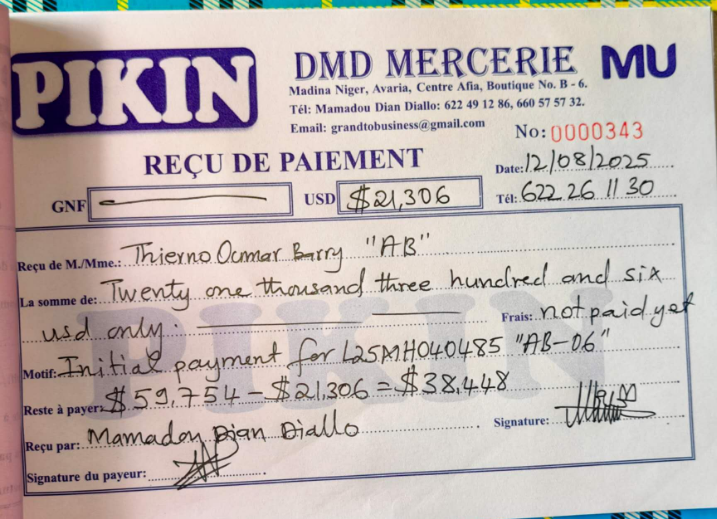 PIKIN
DMD MERCERIE MU
Madina Niger, Avaria, Centre Afia, Boutique No. B - 6.
Tél: Mamadou Dian Diallo: 622 49 12 86, 660 57 57 32.
Email: grandtobusiness@gmail.com
No: 0000343
REÇU DE PAIEMENT
Date: 12/08/2025
GNF USD $21,306
Tél: 622 26 11 30
Reçu de M./Mme.: Thierno Oumar Barry "AB"
La somme de: Twenty one thousand three hundred and six
usd only. Frais: not paid yet
Motif: Initial payment for L25MH040485 "AB-06"
Reste à payer: $59,754 - $21,306 = $38,448
Reçu par: Mamadou Dian Diallo Signature:
Signature du payeur:
PIKIN